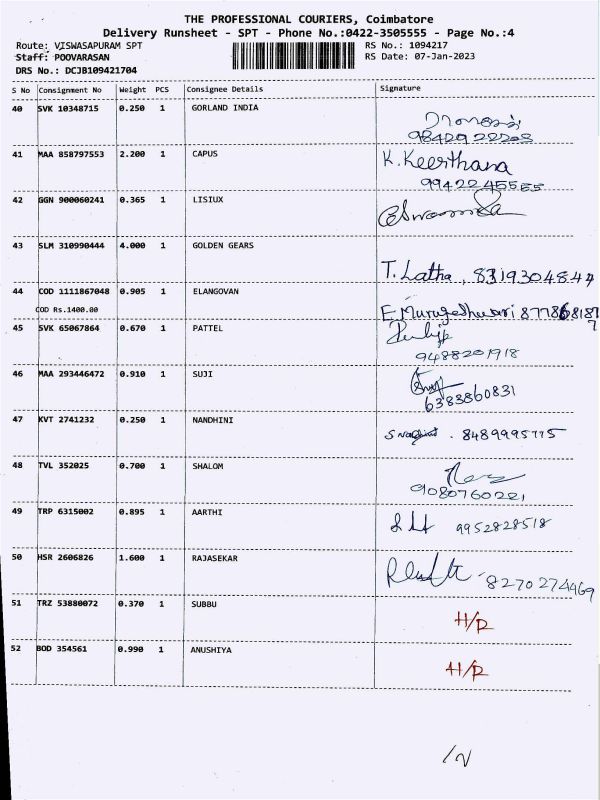 THE PROFESSIONAL COURIERS, Coimbatore
Delivery Runsheet - SPT - Phone No.:0422-3505555 - Page No.:4
Route: VISWASAPURAM SPT RS No.: 1094217
Staff: POOVARASAN RS Date: 07-Jan-2023
DRS No.: DCJB109421704
S No Consignment No Weight PCS Consignee Details Signature
40 SVK 10348715 0.250 1 GORLAND INDIA
9842922203
41 MAA 858797553 2.200 1 CAPUS K. Keerthana
9942245555
42 GGN 900060241 0.365 1 LISIUX
43 SLM 310990444 4.000 1 GOLDEN GEARS
T. Latha, 8319304844
44 COD 1111867048 0.905 1 ELANGOVAN
COD Rs.1400.00 E Murugeshwari
45 SVK 65067864 0.670 1 PATTEL
9488201918
46 MAA 293446472 0.910 1 SUJI
6383860831
47 KVT 2741232 0.250 1 NANDHINI
8489995775
48 TVL 352025 0.700 1 SHALOM
9080760221
49 TRP 6315002 0.895 1 AARTHI
9952828518
50 HSR 2606826 1.600 1 RAJASEKAR
8270274469
51 TRZ 53880072 0.370 1 SUBBU
H/R
52 BOD 354561 0.990 1 ANUSHIYA
H/R